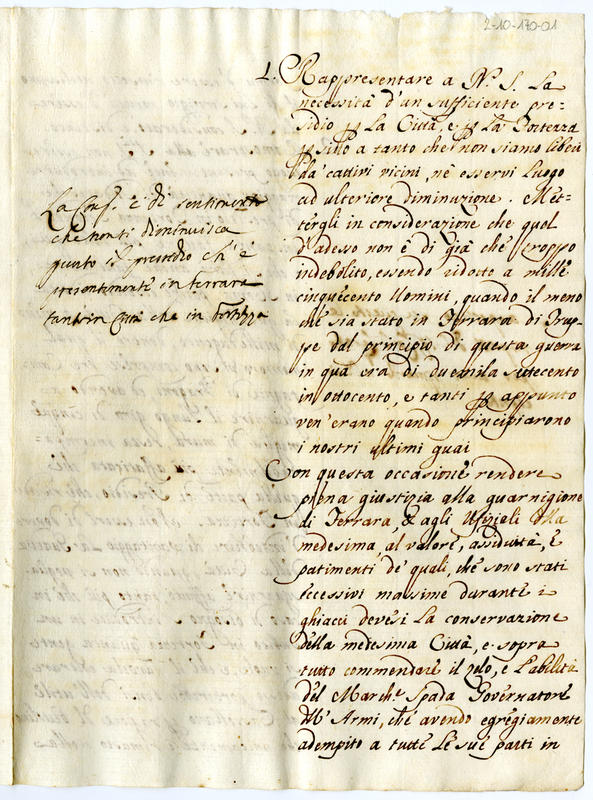 2-10-170-01
1. Rappresentare a N. S. La
necessità d'un sufficiente pre=
sidio p La Città, e p La Fortezza
p sino a tanto che non siamo liberi
da' cattivi vicini, nè esservi Luogo
ad ulteriore diminuzione. Met=
tergli in considerazione che quel
d'adesso non è di già che troppo
indebolito, essendo ridotto a mille
cinquecento Uomini, quando il meno
che sia stato in Ferrara di Trup=
pe dal principio di questa guerra
in quà era di duemila settecento
in ottocento, e tanti p appunto
ven'erano quando principiarono
i nostri ultimi guai
Con questa occasione rendere
piena giustizia alla guarnigione
di Ferrara, & agli Ufiziali della
medesima, al valore, assiduità, e
patimenti de' quali, che sono stati
eccessivi massime durante i
ghiacci devesi La conservazione
della medesima Città, e sopra
tutto commendare il zelo, e L'abilità
del March.e Spada Governatore
dell' Armi, che avendo egregiamente
adempito a tutte Le sue parti in
La Conf. è di sentimento
che non si diminuisca
punto il presidio ch'è
presentimente in Ferrara
tanto in Città che in Fortezza